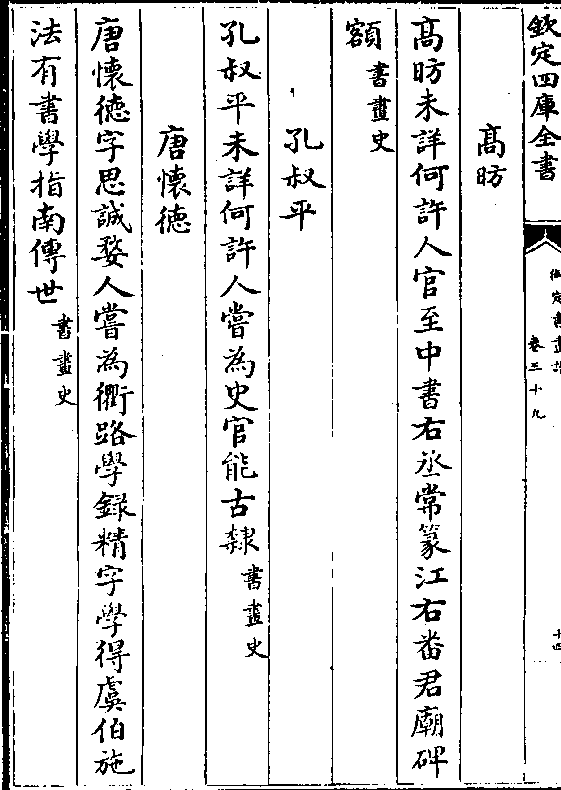 欽定四庫全書
御定書畫譜
卷三十九
十四
高昉
高昉未詳何許人官至中書右丞常篆江右番君廟碑
額書畫史
孔叔平
孔叔平未詳何許人嘗為史官能古隸書畫史
唐懷德
唐懷德字思誠婺人嘗為衢路學録精字學得虞伯施
法有書學指南傳世書畫史